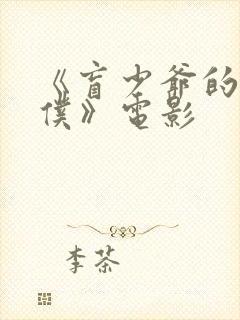 《盲少爷的
僕》電影
李茶